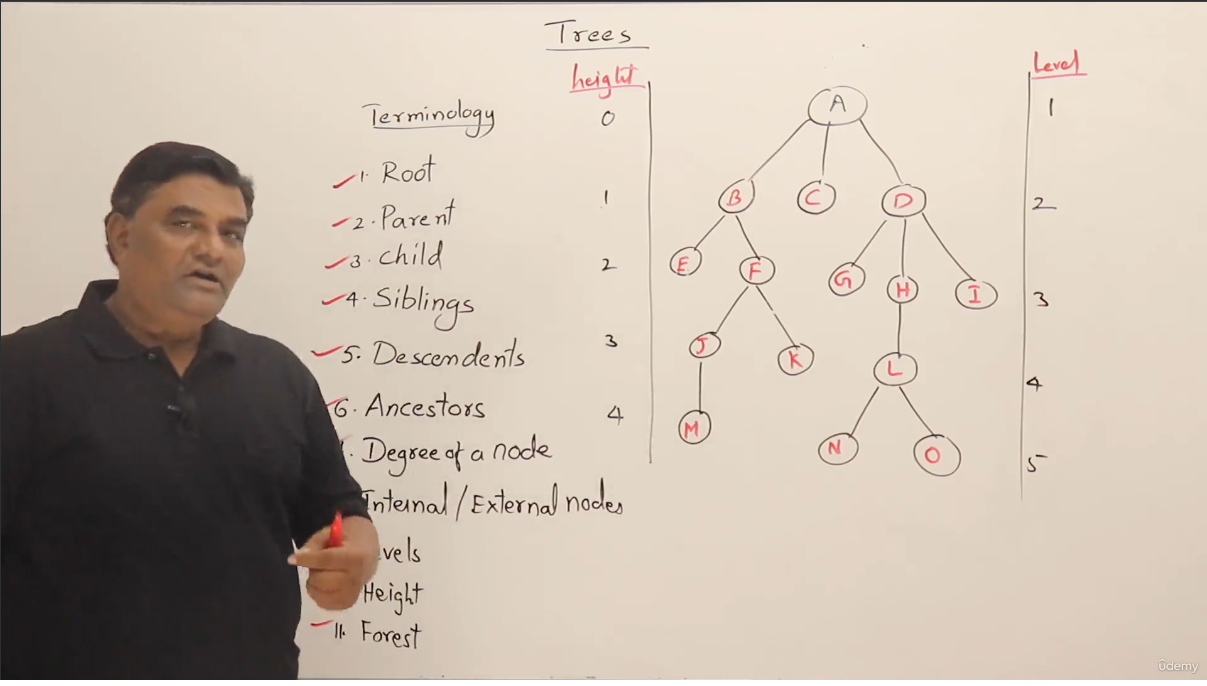 Trees
height
Level
Terminology
1. Root
2. Parent
3. child
4. Siblings
5. Descendents
6. Ancestors
. Degree of a node
Internal/External nodes
vels
Height
11. Forest
0
1
2
3
4
A
B C D
E F G H I
J K L
M N O
1
2
3
4
5
ûdemy